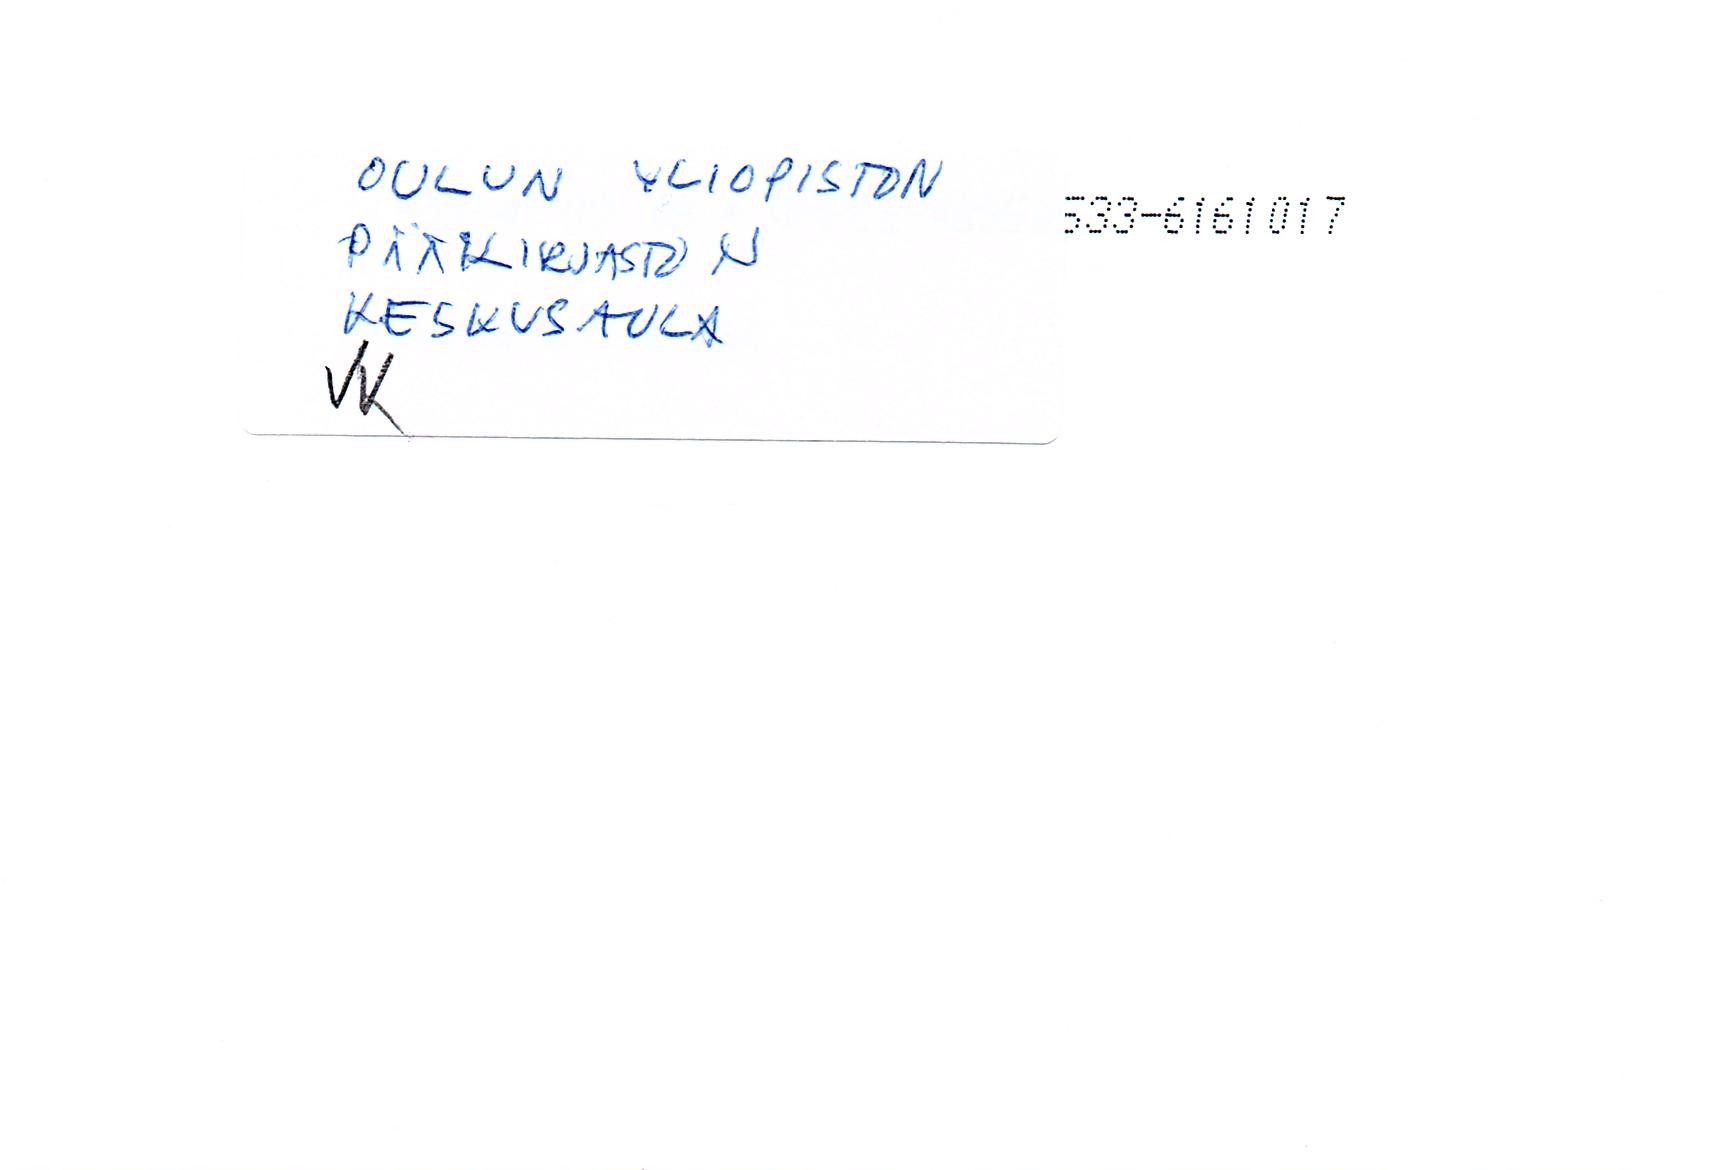 OULUN YLIOPISTON
533-6161017
PÄÄKIRJASTON
KESKUSAULA
VK